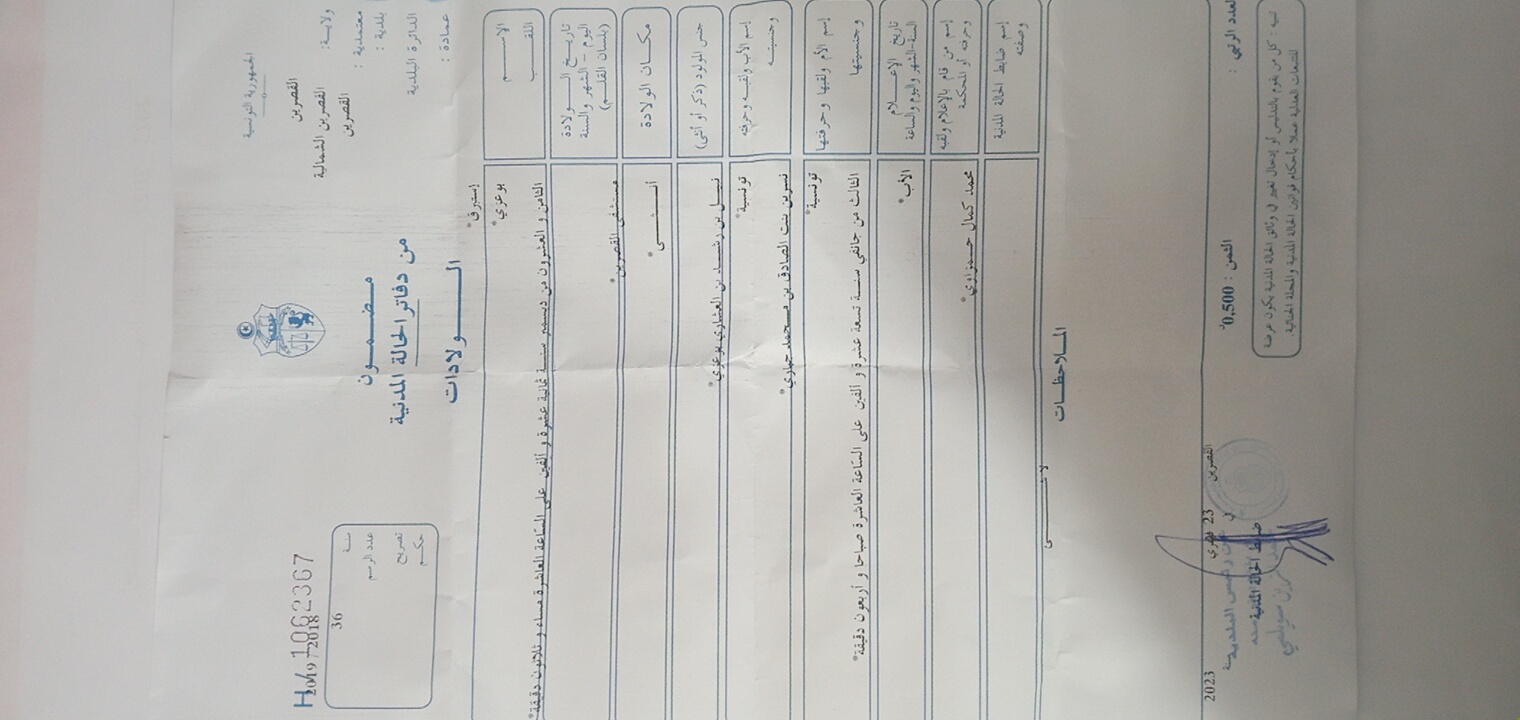 الجمهورية التونسية
ولاية: القصرين
معتمدية : القصرين الشمالية
بلدية : القصرين
الدائرة البلدية
عمادة :
مضمون
من دفاتر الحالة المدنية
الولادات
H/ 1062367
2019/2018
سنة
36
عدد الرسم
تصريح
حكم
الاسم
إستبرق*
اللقب
بوعزي*
تاريخ الولادة
اليوم - الشهر والسنة
(بلسان القلم)
الثامن و العشرون من ديسمبر سنة ثمانية عشرة و ألفين على الساعة العاشرة مساء و ثلاثون دقيقة*
مكان الولادة
مستشفى القصرين*
جنس المولود (ذكر أو أنثى)
أنثى*
إسم الأب ولقبه وحرفته
وجنسيته
نبيل بن رشيد بن العشاري بوعزي*
تونسية*
إسم الأم ولقبها وحرفتها
وجنسيتها
نسرين بنت الصادق بن محمد جباري*
تونسية*
تاريخ الإعلام
السنة-الشهر واليوم والساعة
الثالث من جانفي سنة تسعة عشرة و ألفين على الساعة العاشرة صباحا و أربعون دقيقة*
إسم من قام بالإعلام ولقبه
وحرفته أو المحكمة
الأب*
إسم ضابط الحالة المدنية
وصفته
محمد كمال حمزاوي*
الملاحظات
لا شيء
القصرين في 23 فيفري سنة 2023
ضابط الحالة المدنية
العدد الرتبي :
الثمن : 0,500د
تنبيه : كل من يقوم بالتدليس أو إدخال تغيير في وثائق الحالة المدنية يكون عرضة
للتتبعات العدلية عملا بأحكام قوانين الحالة المدنية والمجلة الجنائية.